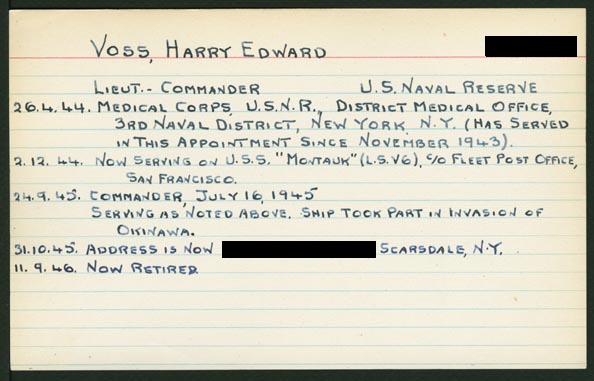 VOSS, HARRY EDWARD
LIEUT.- COMMANDER U.S. NAVAL RESERVE
26.4.44. MEDICAL CORPS, U.S.N.R., DISTRICT MEDICAL OFFICE,
3RD NAVAL DISTRICT, NEW YORK, N.Y. (HAS SERVED
IN THIS APPOINTMENT SINCE NOVEMBER 1943).
2.12.44. NOW SERVING ON U.S.S. "MONTAUK" (L.S.V6), C/O FLEET POST OFFICE,
SAN FRANCISCO.
24.9.45. COMMANDER, JULY 16, 1945
SERVING AS NOTED ABOVE. SHIP TOOK PART IN INVASION OF
OKINAWA.
31.10.45. ADDRESS IS NOW SCARSDALE, N.Y.
11.9.46. NOW RETIRED.